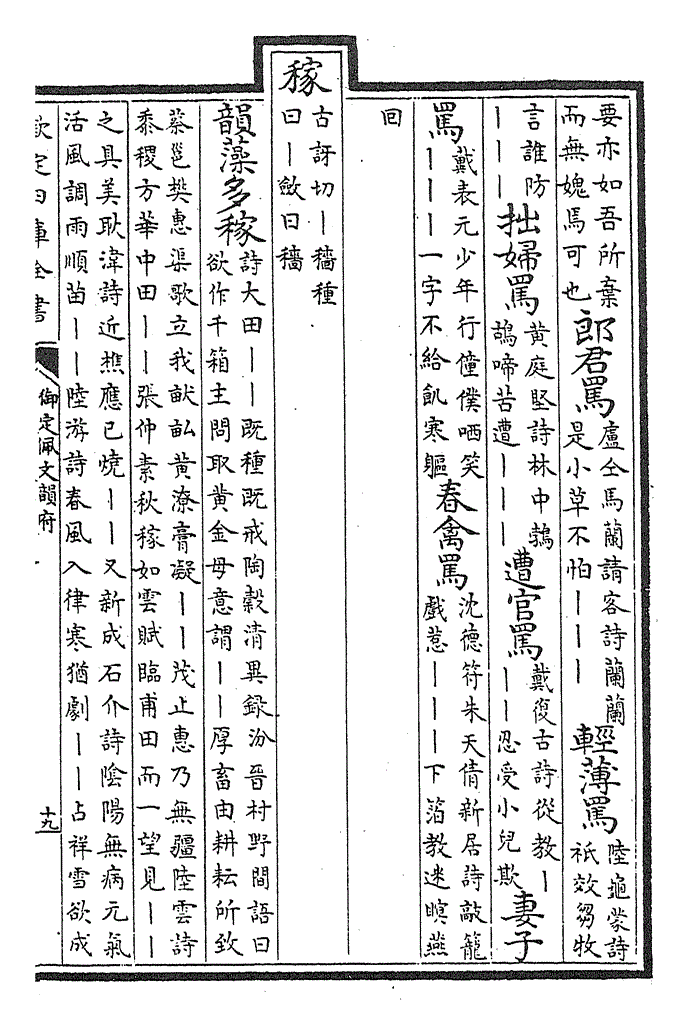 要亦如吾所棄
而無媿焉可也
郎君罵
盧仝馬蘭請客詩蘭蘭
是小草不怕丨丨丨
輕薄罵
陸龜蒙詩
祇效芻牧
言誰防
丨丨丨
拙婦罵
黄庭堅詩林中鵓
鴣啼苦遭丨丨丨
遭官罵
戴復古詩從教丨
丨丨忍受小兒欺
妻子
罵
戴表元少年行僮僕哂笑
丨丨丨一字不給飢寒軀
春禽罵
沈德符朱天倩新居詩敲籠
戲惹丨丨丨下箔教迷瞑燕
回
稼
古訝切丨穡種
曰丨斂曰穡
韻藻
多稼
詩大田丨丨既種既戒陶穀清異録汾晉村野間語曰
欲作千箱主問取黄金母意謂丨丨厚畜由耕耘所致
蔡邕樊惠渠歌立我畎畝黄潦膏凝丨丨茂止惠乃無疆陸雲詩
黍稷方華中田丨丨張仲素秋稼如雲賦臨甫田而一望見丨丨
之具美耿湋詩近樵應已燒丨丨又新成石介詩陰陽無病元氣
活風調雨順苗丨丨陸游詩春風入律寒猶劇丨丨占祥雪欲成
欽定四庫全書
御定佩文韻府
十九